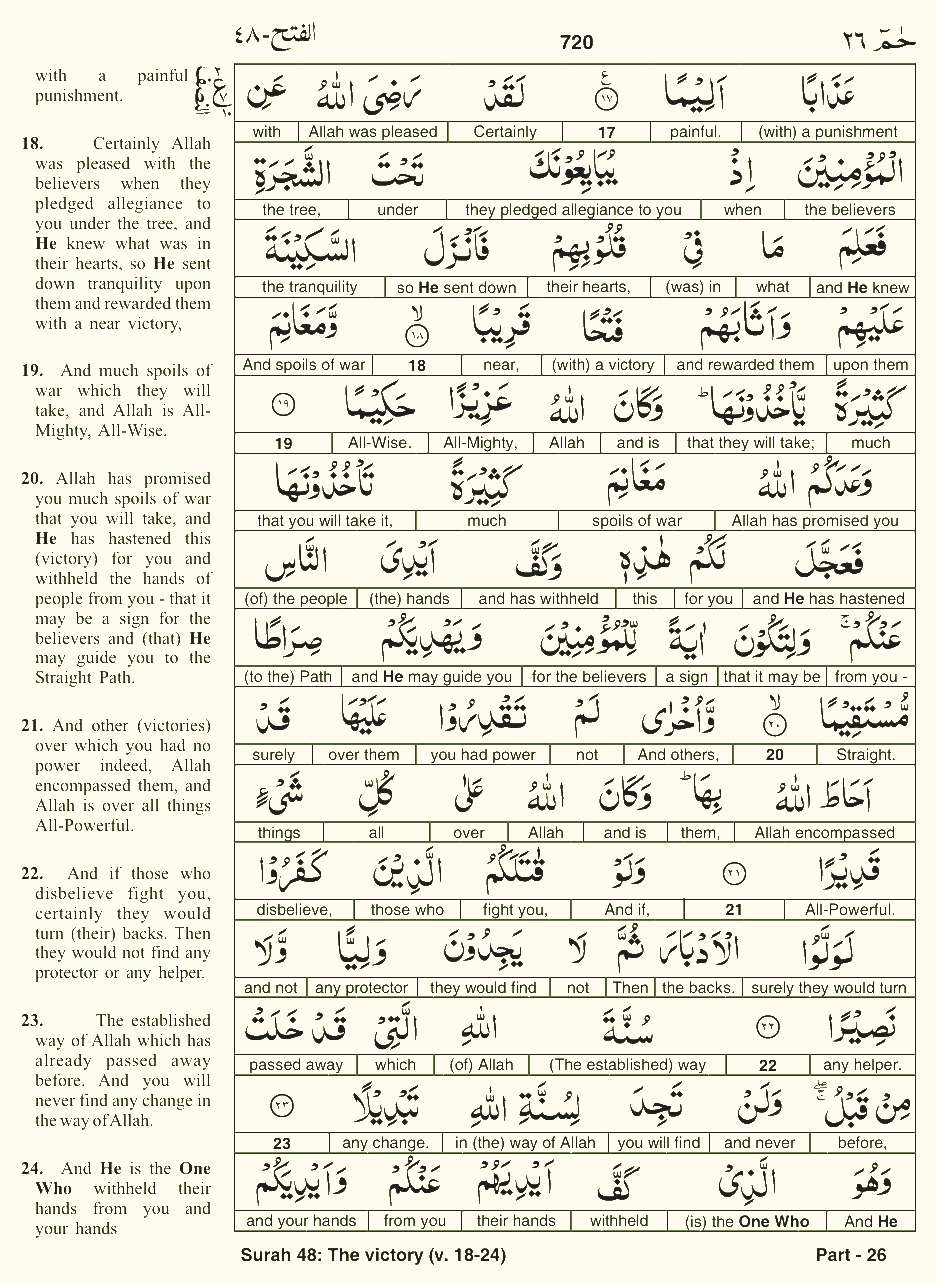 الفتح-٤٨
720
حٰمٓ ٢٦
with a painful
punishment.
18. Certainly Allah
was pleased with the
believers when they
pledged allegiance to
you under the tree, and
He knew what was in
their hearts, so He sent
down tranquility upon
them and rewarded them
with a near victory,
19. And much spoils of
war which they will
take, and Allah is All-
Mighty, All-Wise.
20. Allah has promised
you much spoils of war
that you will take, and
He has hastened this
(victory) for you and
withheld the hands of
people from you - that it
may be a sign for the
believers and (that) He
may guide you to the
Straight Path.
21. And other (victories)
over which you had no
power indeed, Allah
encompassed them, and
Allah is over all things
All-Powerful.
22. And if those who
disbelieve fight you,
certainly they would
turn (their) backs. Then
they would not find any
protector or any helper.
23. The established
way of Allah which has
already passed away
before. And you will
never find any change in
the way of Allah.
24. And He is the One
Who withheld their
hands from you and
your hands
عَذَابًا اَلِيْمًا ۧ ١٧ لَقَدْ رَضِىَ اللّٰهُ عَنِ
with Allah was pleased Certainly 17 painful. (with) a punishment
الْمُؤْمِنِيْنَ اِذْ يُبَايِعُوْنَكَ تَحْتَ الشَّجَرَةِ
the tree, under they pledged allegiance to you when the believers
فَعَلِمَ مَا فِىْ قُلُوْبِهِمْ فَاَنْزَلَ السَّكِيْنَةَ
the tranquility so He sent down their hearts, (was) in what and He knew
عَلَيْهِمْ وَاَثَابَهُمْ فَتْحًا قَرِيْبًا ۙ ١٨ وَّمَغَانِمَ
And spoils of war 18 near, (with) a victory and rewarded them upon them
كَثِيْرَةً يَّاْخُذُوْنَهَا ؕ وَكَانَ اللّٰهُ عَزِيْزًا حَكِيْمًا ١٩
19 All-Wise. All-Mighty, Allah and is that they will take; much
وَعَدَكُمُ اللّٰهُ مَغَانِمَ كَثِيْرَةً تَاْخُذُوْنَهَا
that you will take it, much spoils of war Allah has promised you
فَعَجَّلَ لَكُمْ هٰذِهٖ وَكَفَّ اَيْدِىَ النَّاسِ
(of) the people (the) hands and has withheld this for you and He has hastened
عَنْكُمْ ۚ وَلِتَكُوْنَ اٰيَةً لِّلْمُؤْمِنِيْنَ وَيَهْدِيَكُمْ صِرَاطًا
(to the) Path and He may guide you for the believers a sign that it may be from you -
مُّسْتَقِيْمًا ۙ ٢٠ وَّاُخْرٰى لَمْ تَقْدِرُوْا عَلَيْهَا قَدْ
surely over them you had power not And others, 20 Straight.
اَحَاطَ اللّٰهُ بِهَا ؕ وَكَانَ اللّٰهُ عَلٰى كُلِّ شَىْءٍ
things all over Allah and is them, Allah encompassed
قَدِيْرًا ٢١ وَلَوْ قٰتَلَكُمُ الَّذِيْنَ كَفَرُوْا
disbelieve, those who fight you, And if, 21 All-Powerful.
لَوَلَّوُا الْاَدْبَارَ ثُمَّ لَا يَجِدُوْنَ وَلِيًّا وَّلَا
and not any protector they would find not Then the backs. surely they would turn
نَصِيْرًا ٢٢ سُنَّةَ اللّٰهِ الَّتِىْ قَدْ خَلَتْ
passed away which (of) Allah (The established) way 22 any helper.
مِنْ قَبْلُ ۖۚ وَلَنْ تَجِدَ لِسُنَّةِ اللّٰهِ تَبْدِيْلًا ٢٣
23 any change. in (the) way of Allah you will find and never before,
وَهُوَ الَّذِىْ كَفَّ اَيْدِيَهُمْ عَنْكُمْ وَاَيْدِيَكُمْ
and your hands from you their hands withheld (is) the One Who And He
Surah 48: The victory (v. 18-24)
Part - 26